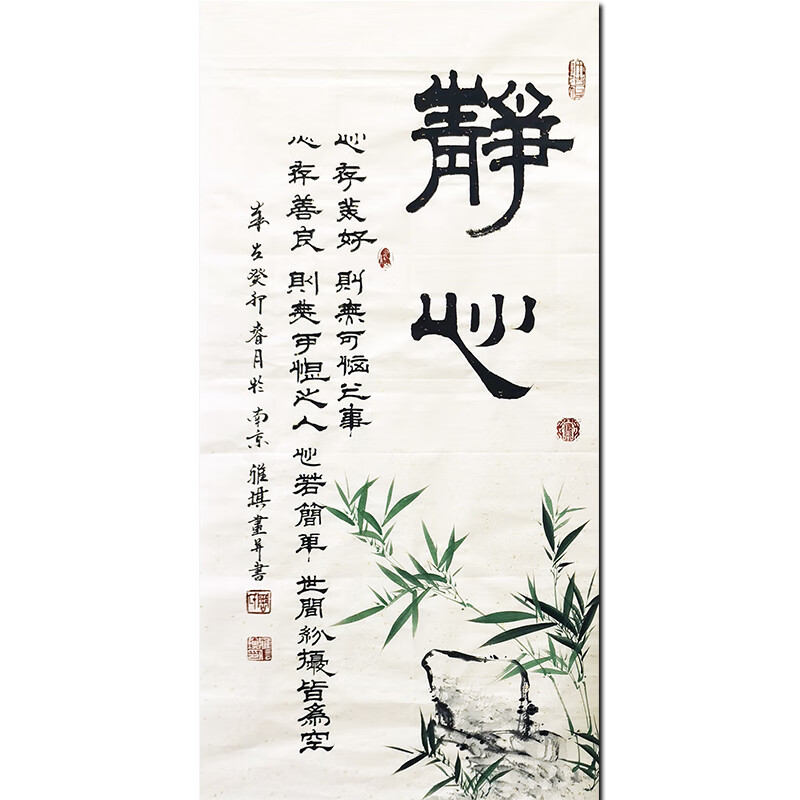 靜心
心存美好 則無可惱之事
心存善良 則無可恨之人 心若簡單 世間紛擾皆為空
歲在癸卯春月於南京 雅琪畫并書